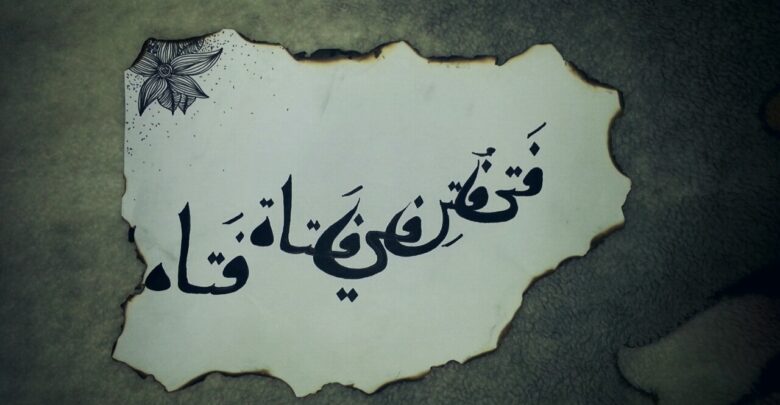 فَتى فُتِن في فَتاة فَتاه